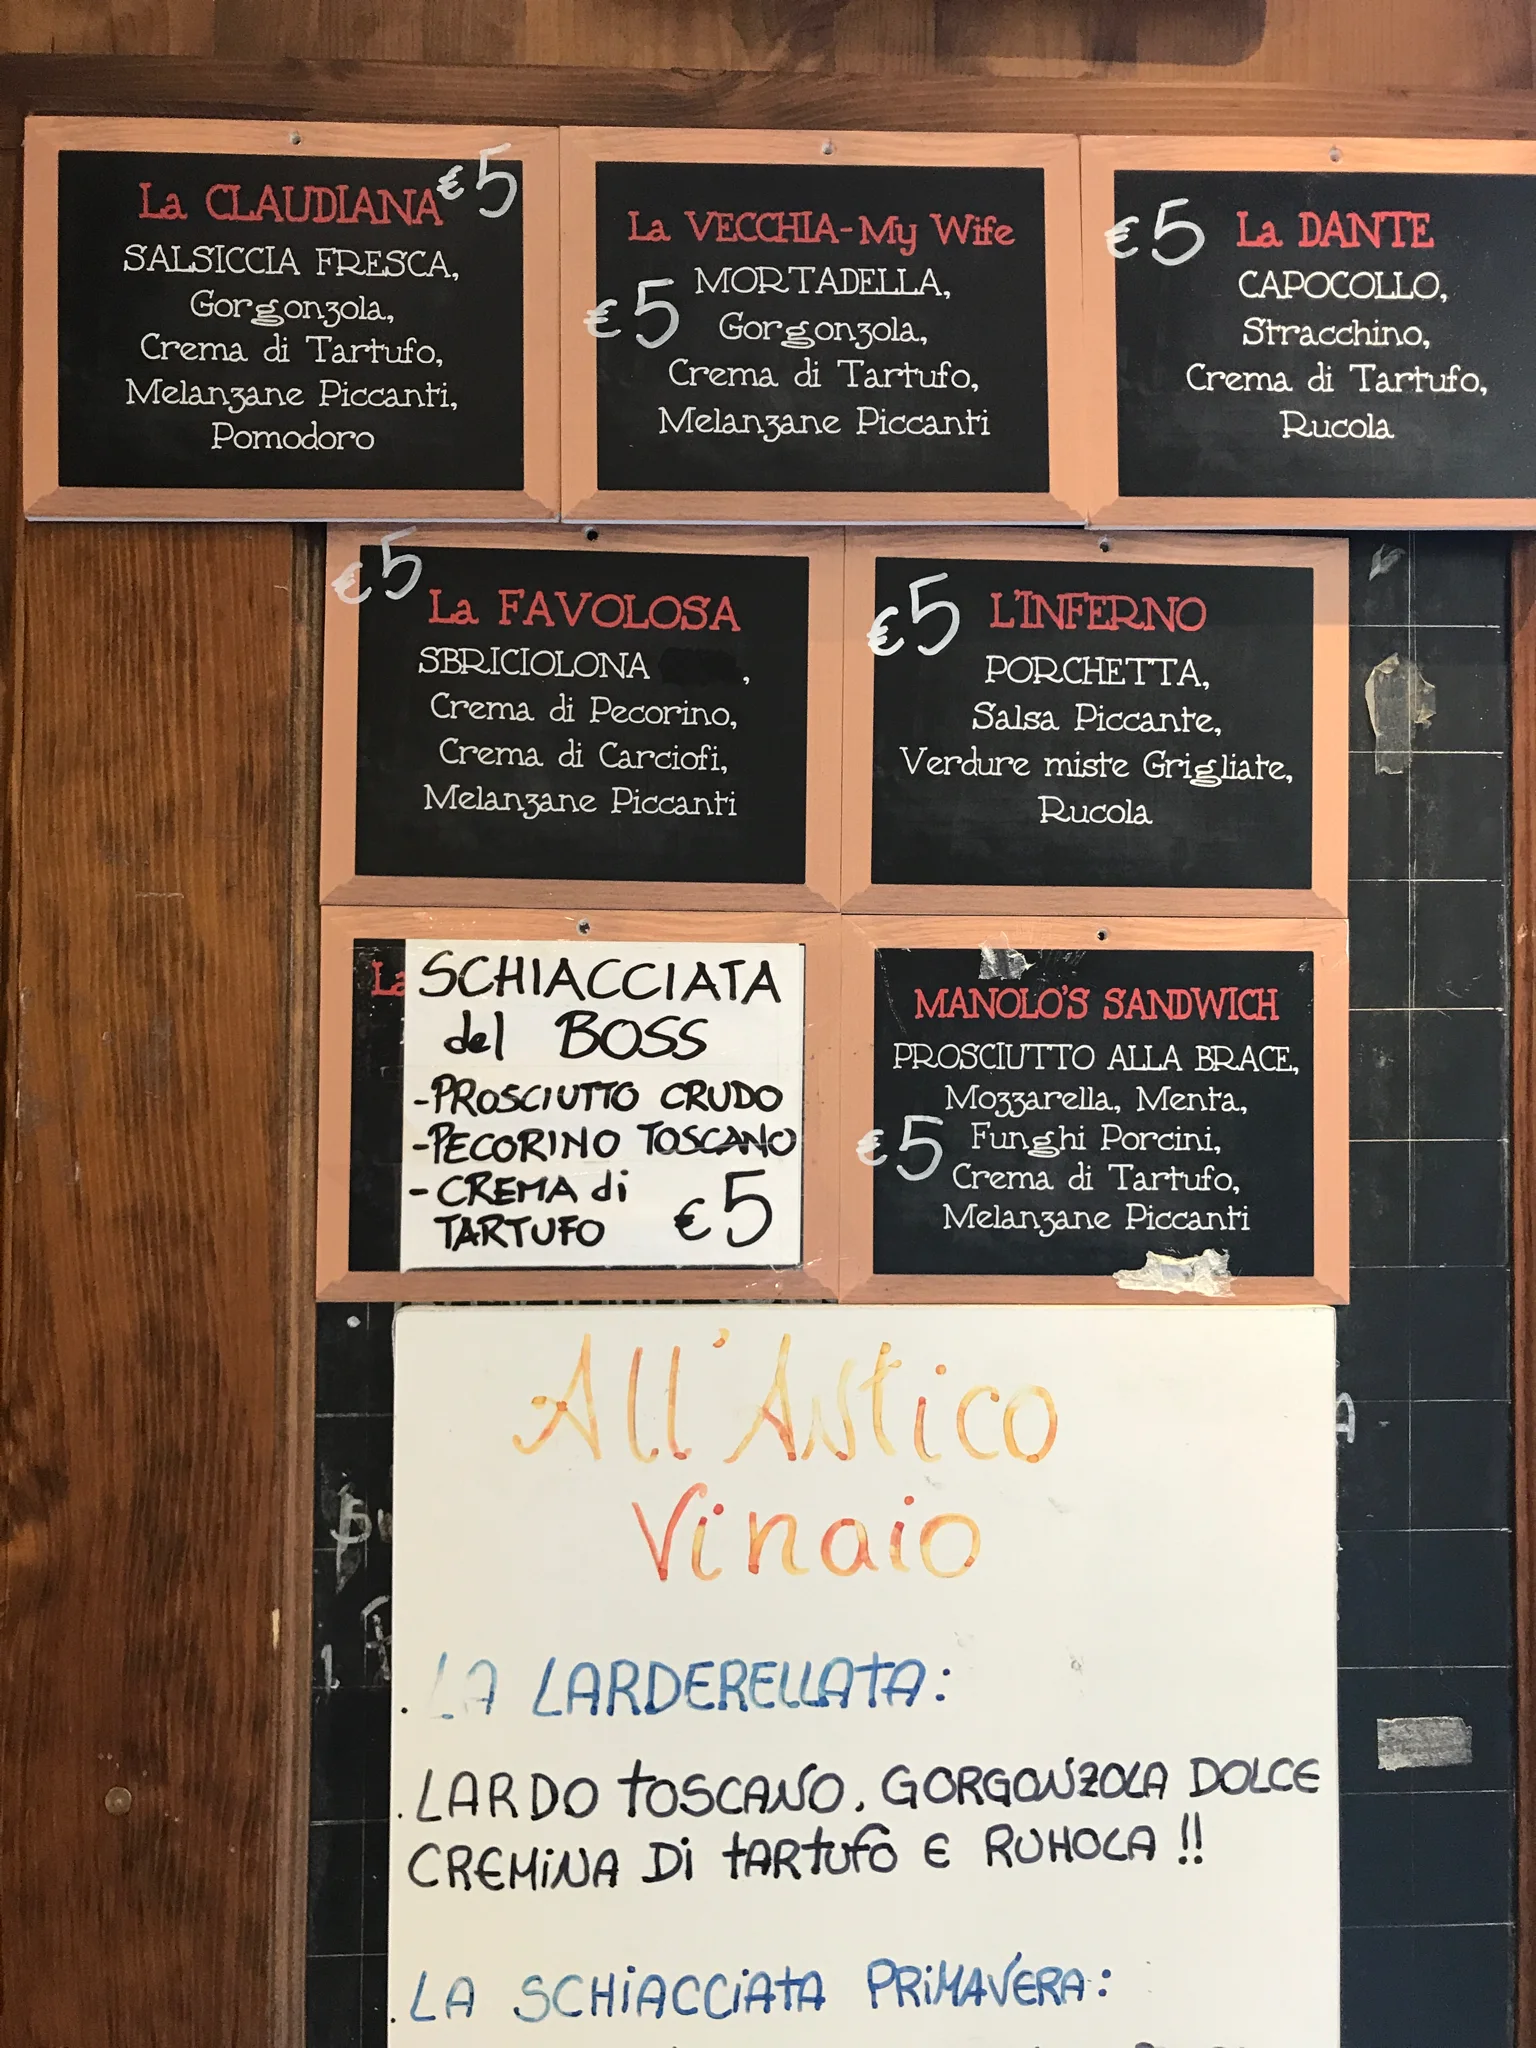 La CLAUDIANA €5
SALSICCIA FRESCA,
Gorgonzola,
Crema di Tartufo,
Melanzane Piccanti,
Pomodoro
La VECCHIA-My Wife
€5
MORTADELLA,
Gorgonzola,
Crema di Tartufo,
Melanzane Piccanti
€5 La DANTE
CAPOCOLLO,
Stracchino,
Crema di Tartufo,
Rucola
€5
La FAVOLOSA
SBRICIOLONA ,
Crema di Pecorino,
Crema di Carciofi,
Melanzane Piccanti
€5 L'INFERNO
PORCHETTA,
Salsa Piccante,
Verdure miste Grigliate,
Rucola
La
SCHIACCIATA
del BOSS
-PROSCIUTTO CRUDO
-PECORINO TOSCANO
-CREMA di
TARTUFO €5
MANOLO'S SANDWICH
PROSCIUTTO ALLA BRACE,
Mozzarella, Menta,
€5 Funghi Porcini,
Crema di Tartufo,
Melanzane Piccanti
All'Antico
Vinaio
. LA LARDERELLATA:
. LARDO TOSCANO, GORGONZOLA DOLCE
CREMINA DI TARTUFO E RUHOLA !!
. LA SCHIACCIATA PRIMAVERA: